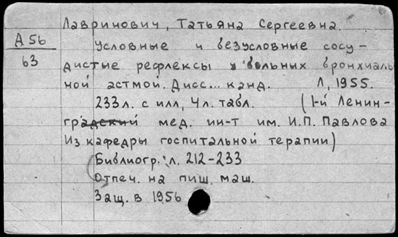 Лавринович, Татьяна Сергеевна.
А 56
63
Условные и безусловные сосу-
дистые рефлексы у больных бронхиаль-
ной астмой. Дисс... канд. Л, 1955.
233 л. с илл, 4 л. табл. (1-й Ленин-
градский мед. ин-т им. И.П. Павлова
Из кафедры госпитальной терапии)
Библиогр: л. 212-233
Отпеч. на пиш. маш.
Защ. в 1956